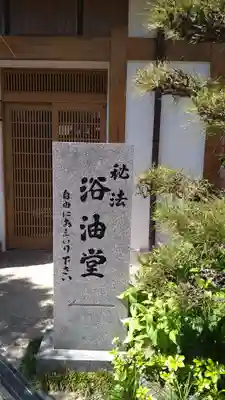 秘法
浴油堂
自由にお立いり下さい